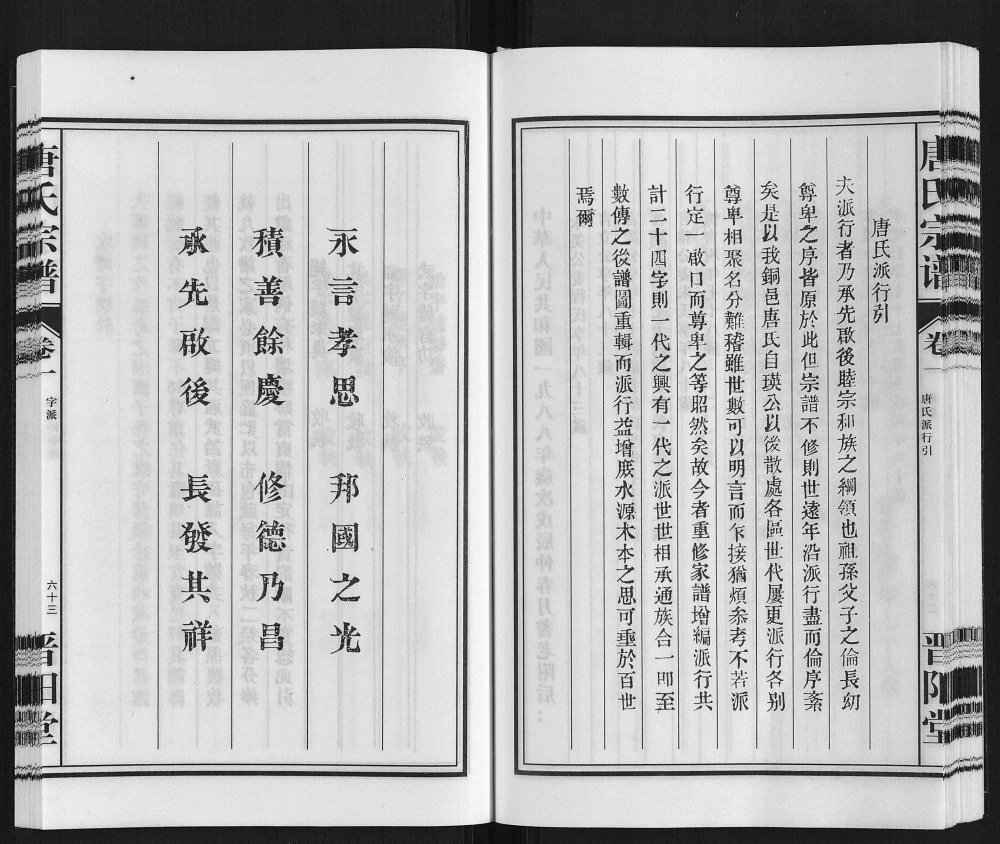 唐氏宗谱
卷一
唐氏派行引
晋阳堂
唐氏派行引
夫派行者乃承先啟後睦宗和族之綱領也祖孫父子之倫長幼
尊卑之序皆原於此但宗譜不修則世遠年沿派行盡而倫序紊
矣是以我銅邑唐氏自瑛公以後散處各區世代屢更派行各别
尊卑相聚名分難稽雖世數可以明言而乍接猶煩参考不若派
行定一啟口而尊卑之等昭然矣故今者重修家譜增編派行共
計二十四字則一代之興有一代之派世世相承通族合一即至
數傳之後譜圖重輯而派行益增庶水源木本之思可垂於百世
焉爾
永言孝思 邦國之光
積善餘慶 修德乃昌
承先啟後 長發其祥
唐氏宗譜
卷一
字派
六十三
晋阳堂